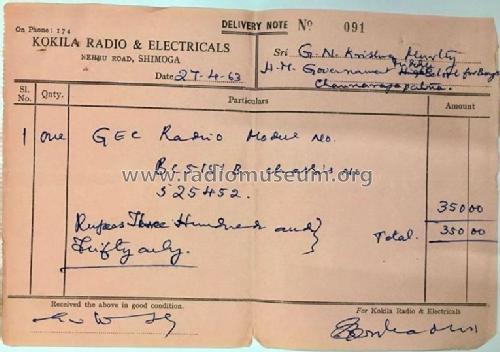 On Phone: 174
DELIVERY NOTE No 091
KOKILA RADIO & ELECTRICALS
NEHRU ROAD, SHIMOGA
Date 27-4-63
Sri G. N. Krishna Murty
H.M. Government High School for Boys
Channarayapatna.
Sl. No. Qnty. Particulars Amount
1 one GEC Radio Model No.
BC 5151 B chassis No
S 25452. 350 00
Rupees Three Hundred and } Total. 350 00
Fifty only.
www.radiomuseum.org
Received the above in good condition.
For Kokila Radio & Electricals